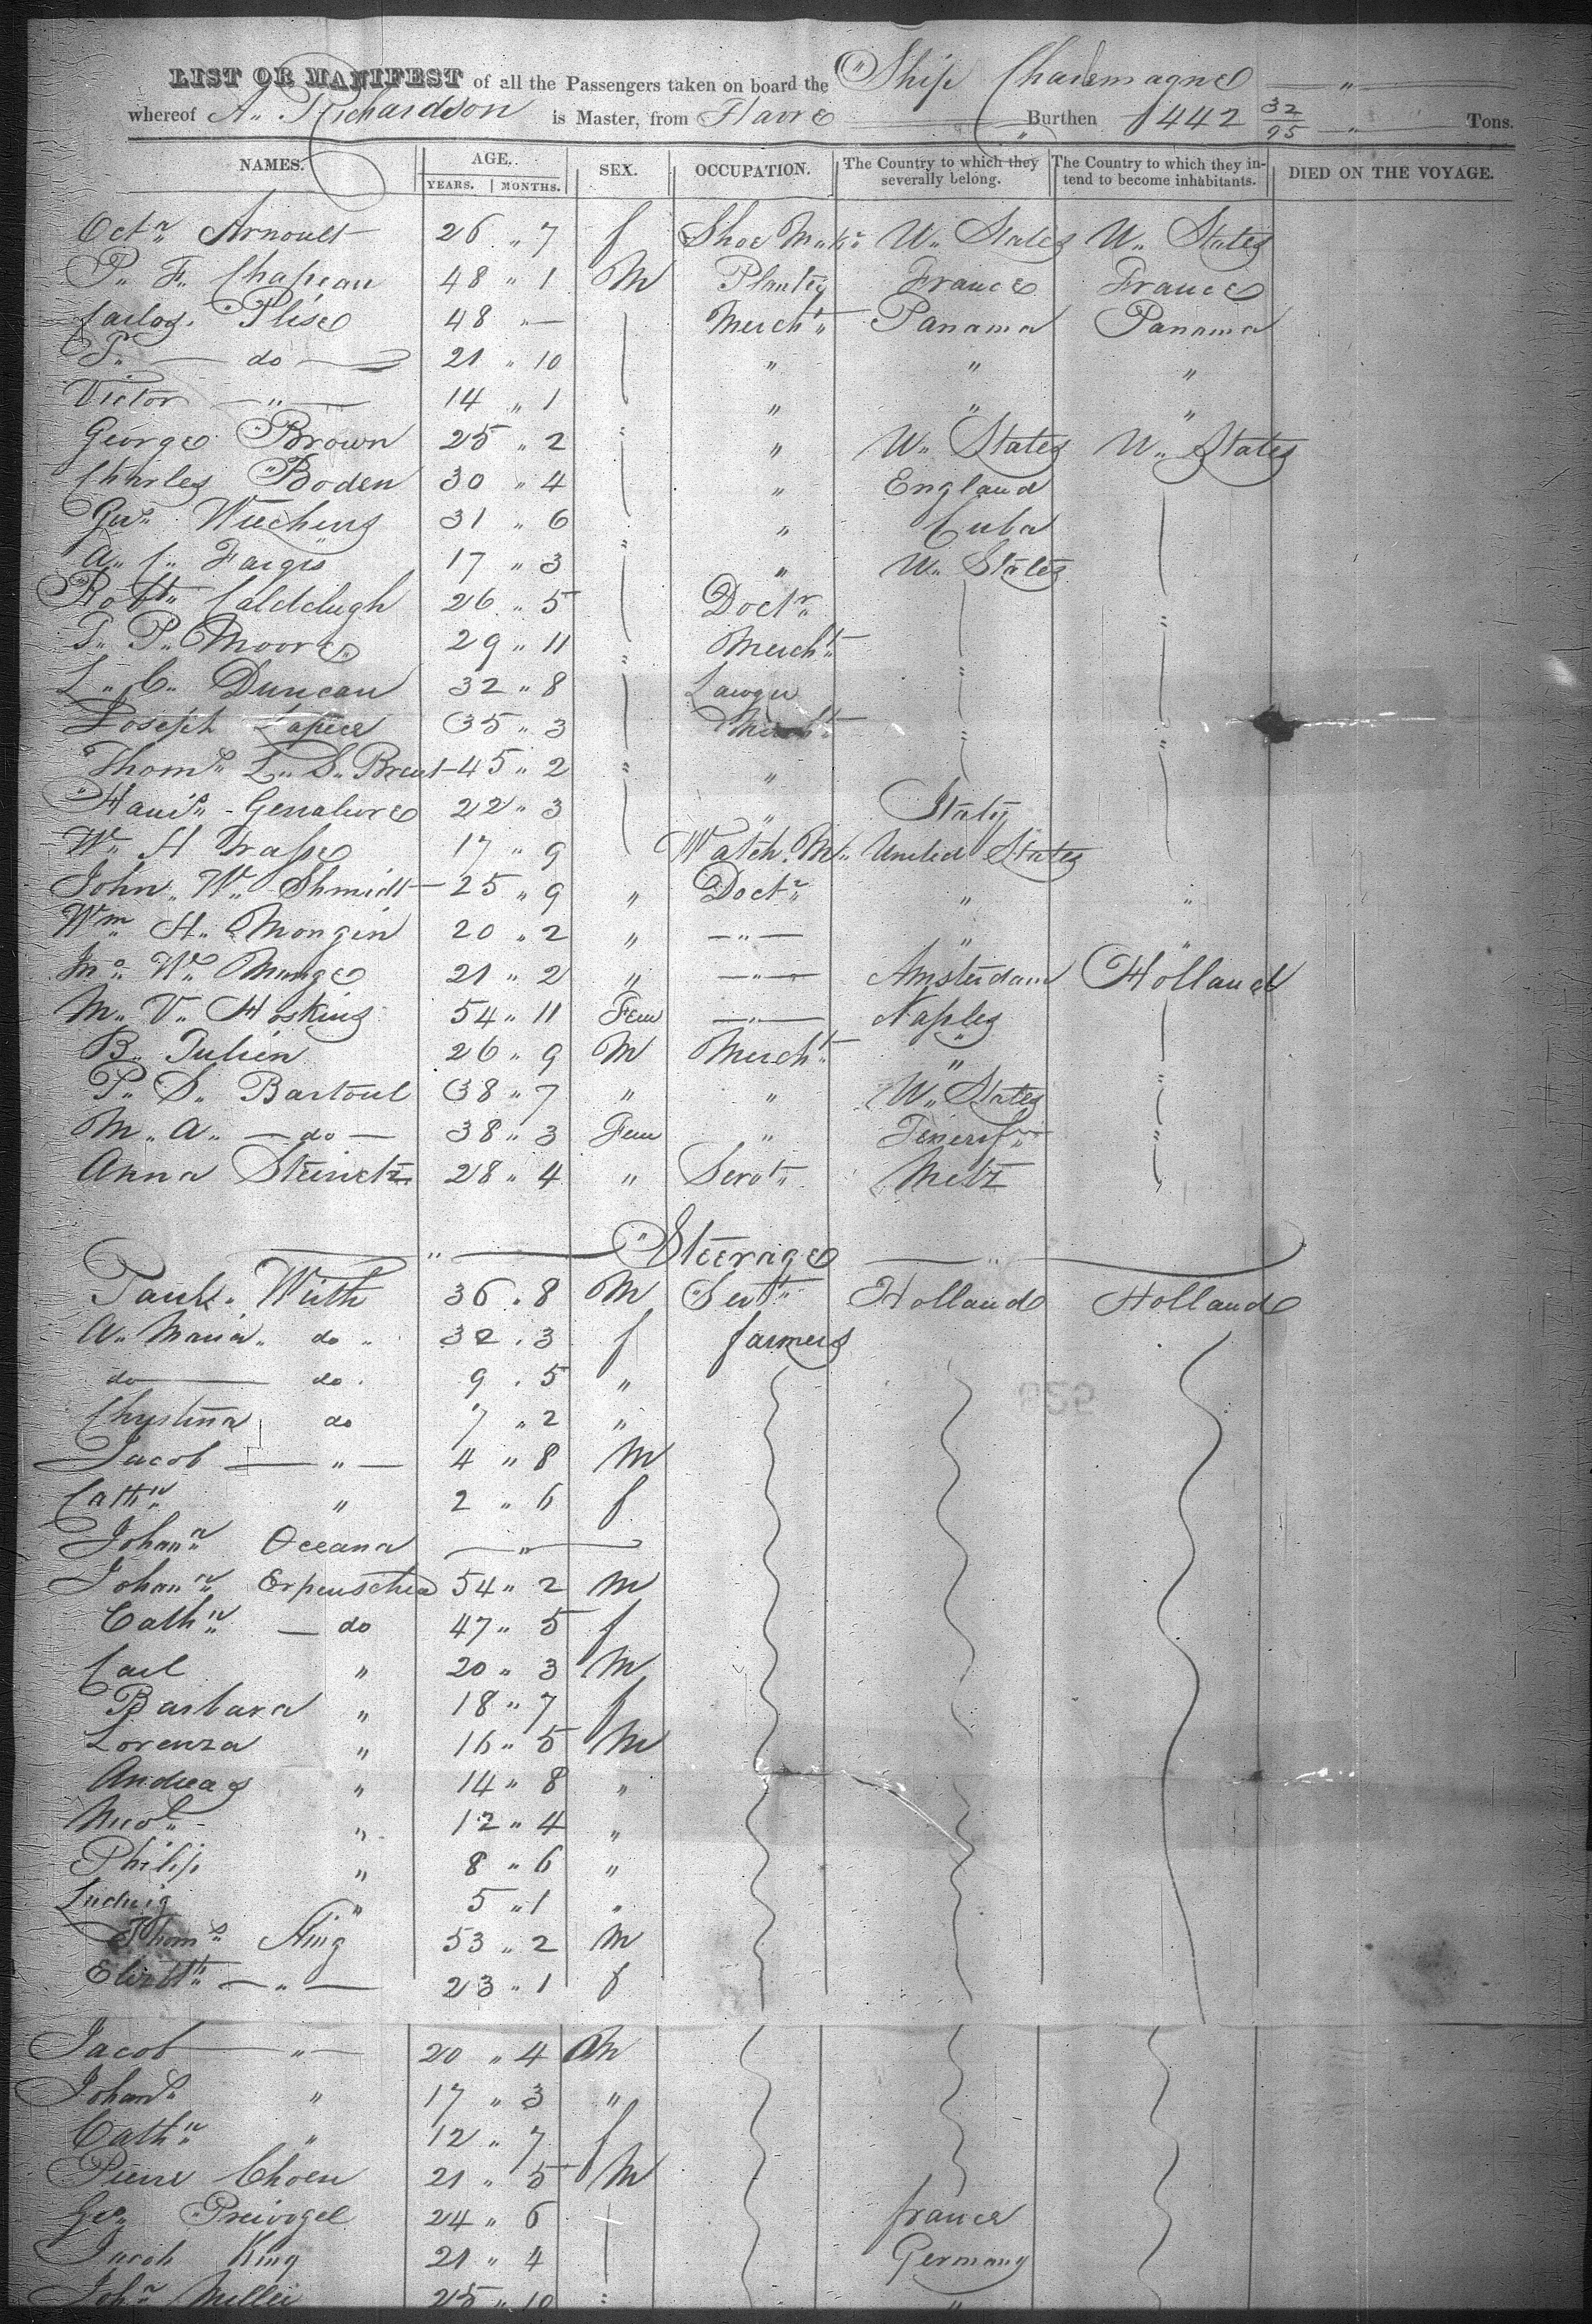 LIST OR MANIFEST of all the Passengers taken on board the Ship Charlemagne "
whereof A. Richardson is Master, from Havre Burthen 442 32/95 " Tons.
NAMES. AGE. YEARS. MONTHS. SEX. OCCUPATION. The Country to which they severally belong. The Country to which they intend to become inhabitants. DIED ON THE VOYAGE.
Octa Arnoult 26 " 7 f Shoe Makr U. States U. States
P. F. Chapeau 48 " 1 M France France
Carlos Plise 48 " — Mercht Panama Panama
do 21 " 10 " " "
Victor " 14 " 1 " " "
George Brown 25 " 2 " " U. States U. States
Charles Boden 30 " 4 " England
31 " 6 " " Cuba
A. 17 " 3 " " U. States
Robt Caldclugh 26 " 5 Doctr "
P. Moore 29 " 11 " Mercht
L. C. Duncan 32 " 8 Lawyer "
Joseph Lapice 35 " 3 Mercht "
Thoms L. S. Brent 45 " 2 " " "
22 " 3 "
Wm H 17 " 9 Watch. M. United States
John W. Shmidt 25 " 9 " Doctr " "
Wm H. Mongin 20 " 2 " " " "
Jno Wm Munge 21 " 2 " " Amsterdam Holland
M. V. Hoskins 54 " 11 Fem " Naples
B. Julien 26 " 9 M Mercht "
P. S. Bartoul 38 " 7 " " U. States "
M. A. do 38 " 3 Fem " "
Anna Steinetz 28 " 4 " Servt Metz
" Steerage "
Paul Wirth 36 " 8 M Servt Holland Holland
A. Maria do 32 . 3 f farmers
do do 9 . 5 "
Chystina do 7 " 2 "
Jacob " 4 " 8 M
Cathn " 2 " 6 f
Johana Oceana "
Johana 54 " 2 M
Cathn do 47 " 5 f
Carl " 20 " 3 M
Barbara " 18 " 7 f
Lorenza " 16 " 5 M
Andreas " 14 " 8 "
" 12 " 4 "
Philip " 8 " 6 "
Ludwig " 5 " 1 "
Thoms King 53 " 2 M
Elizbth " 23 " 1 f
Jacob " 20 " 4 M
Johans " 17 " 3 "
Cathn " 12 " 7 f
Pierre Choen 21 " 5 M
Geo Preivogel 24 " 6 france
Jacob King 21 " 4 Germany
John Miller 25 " 10 " "